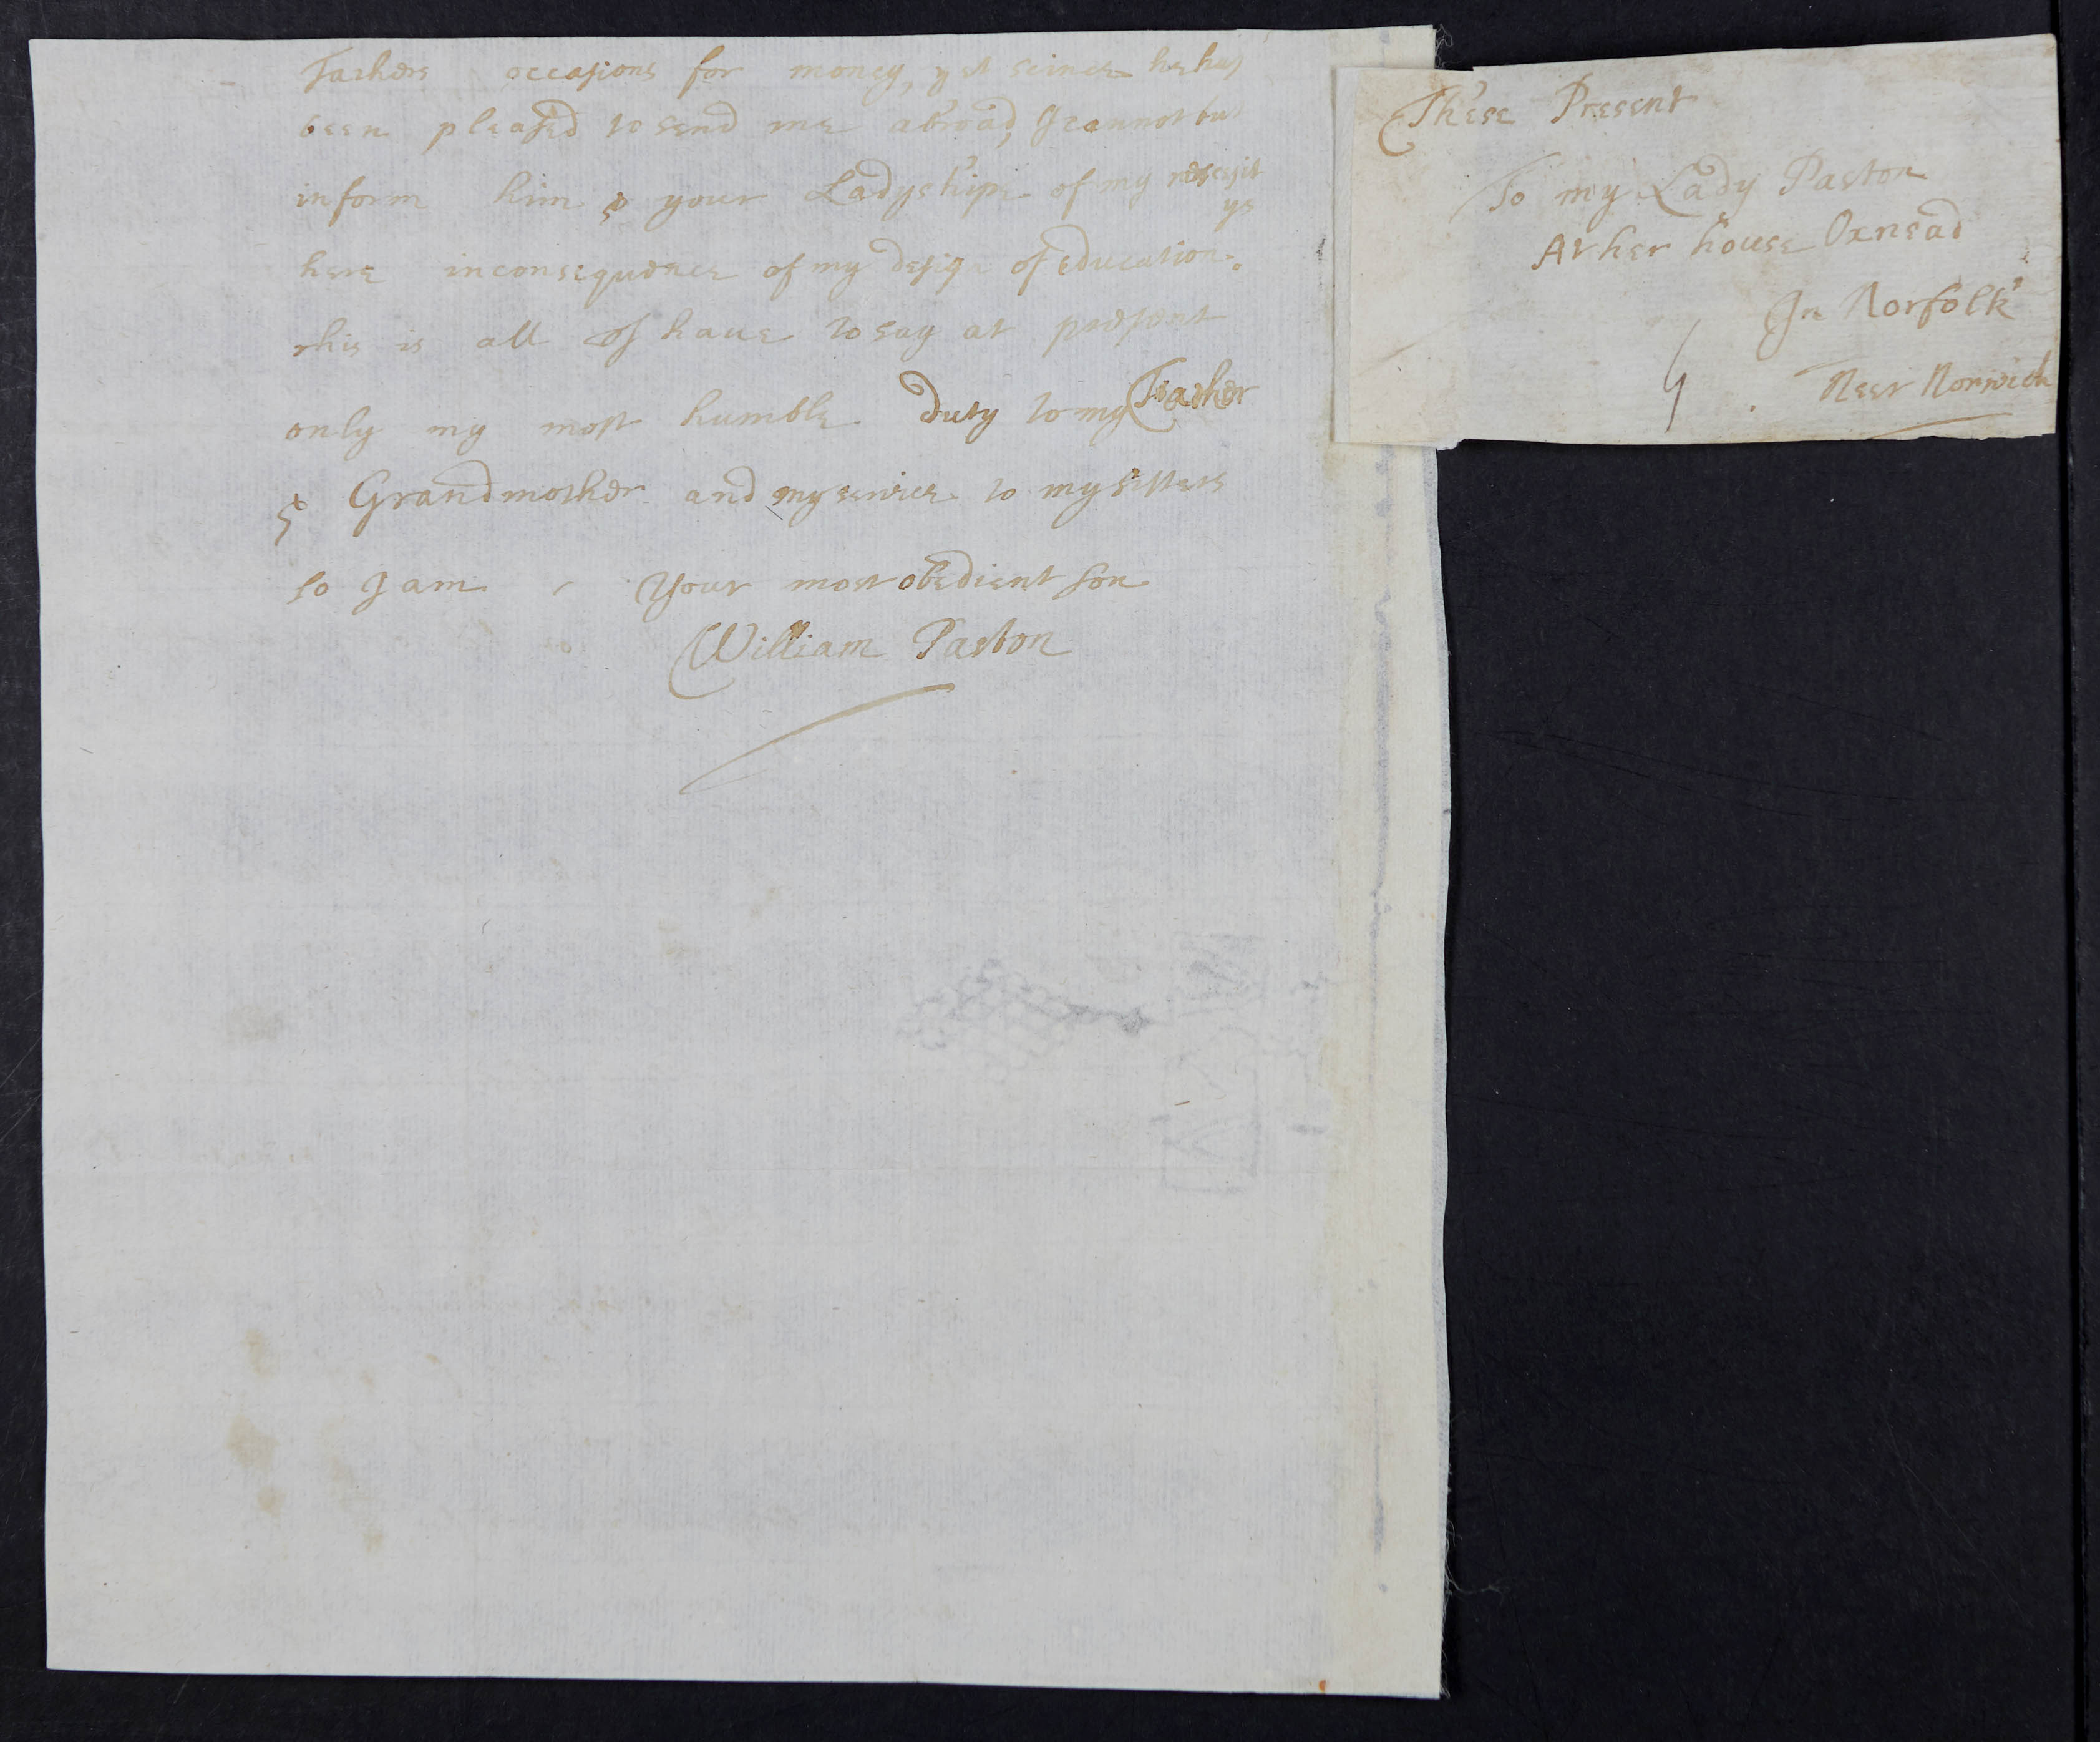 Fathers occasions for money, yet seince he has
been pleased to send me abroad, I cannot but
inform him & your Ladyshipe of my
here in consequence of my design of education.
this is all I have to say at present
only my most humble duty to my Father
& Grandmother and my service to my sisters
so I am Your most obedient son
William Paston
These Present
To my Lady Paston
At her house Oxnead
In Norfolk
Neer Norwich